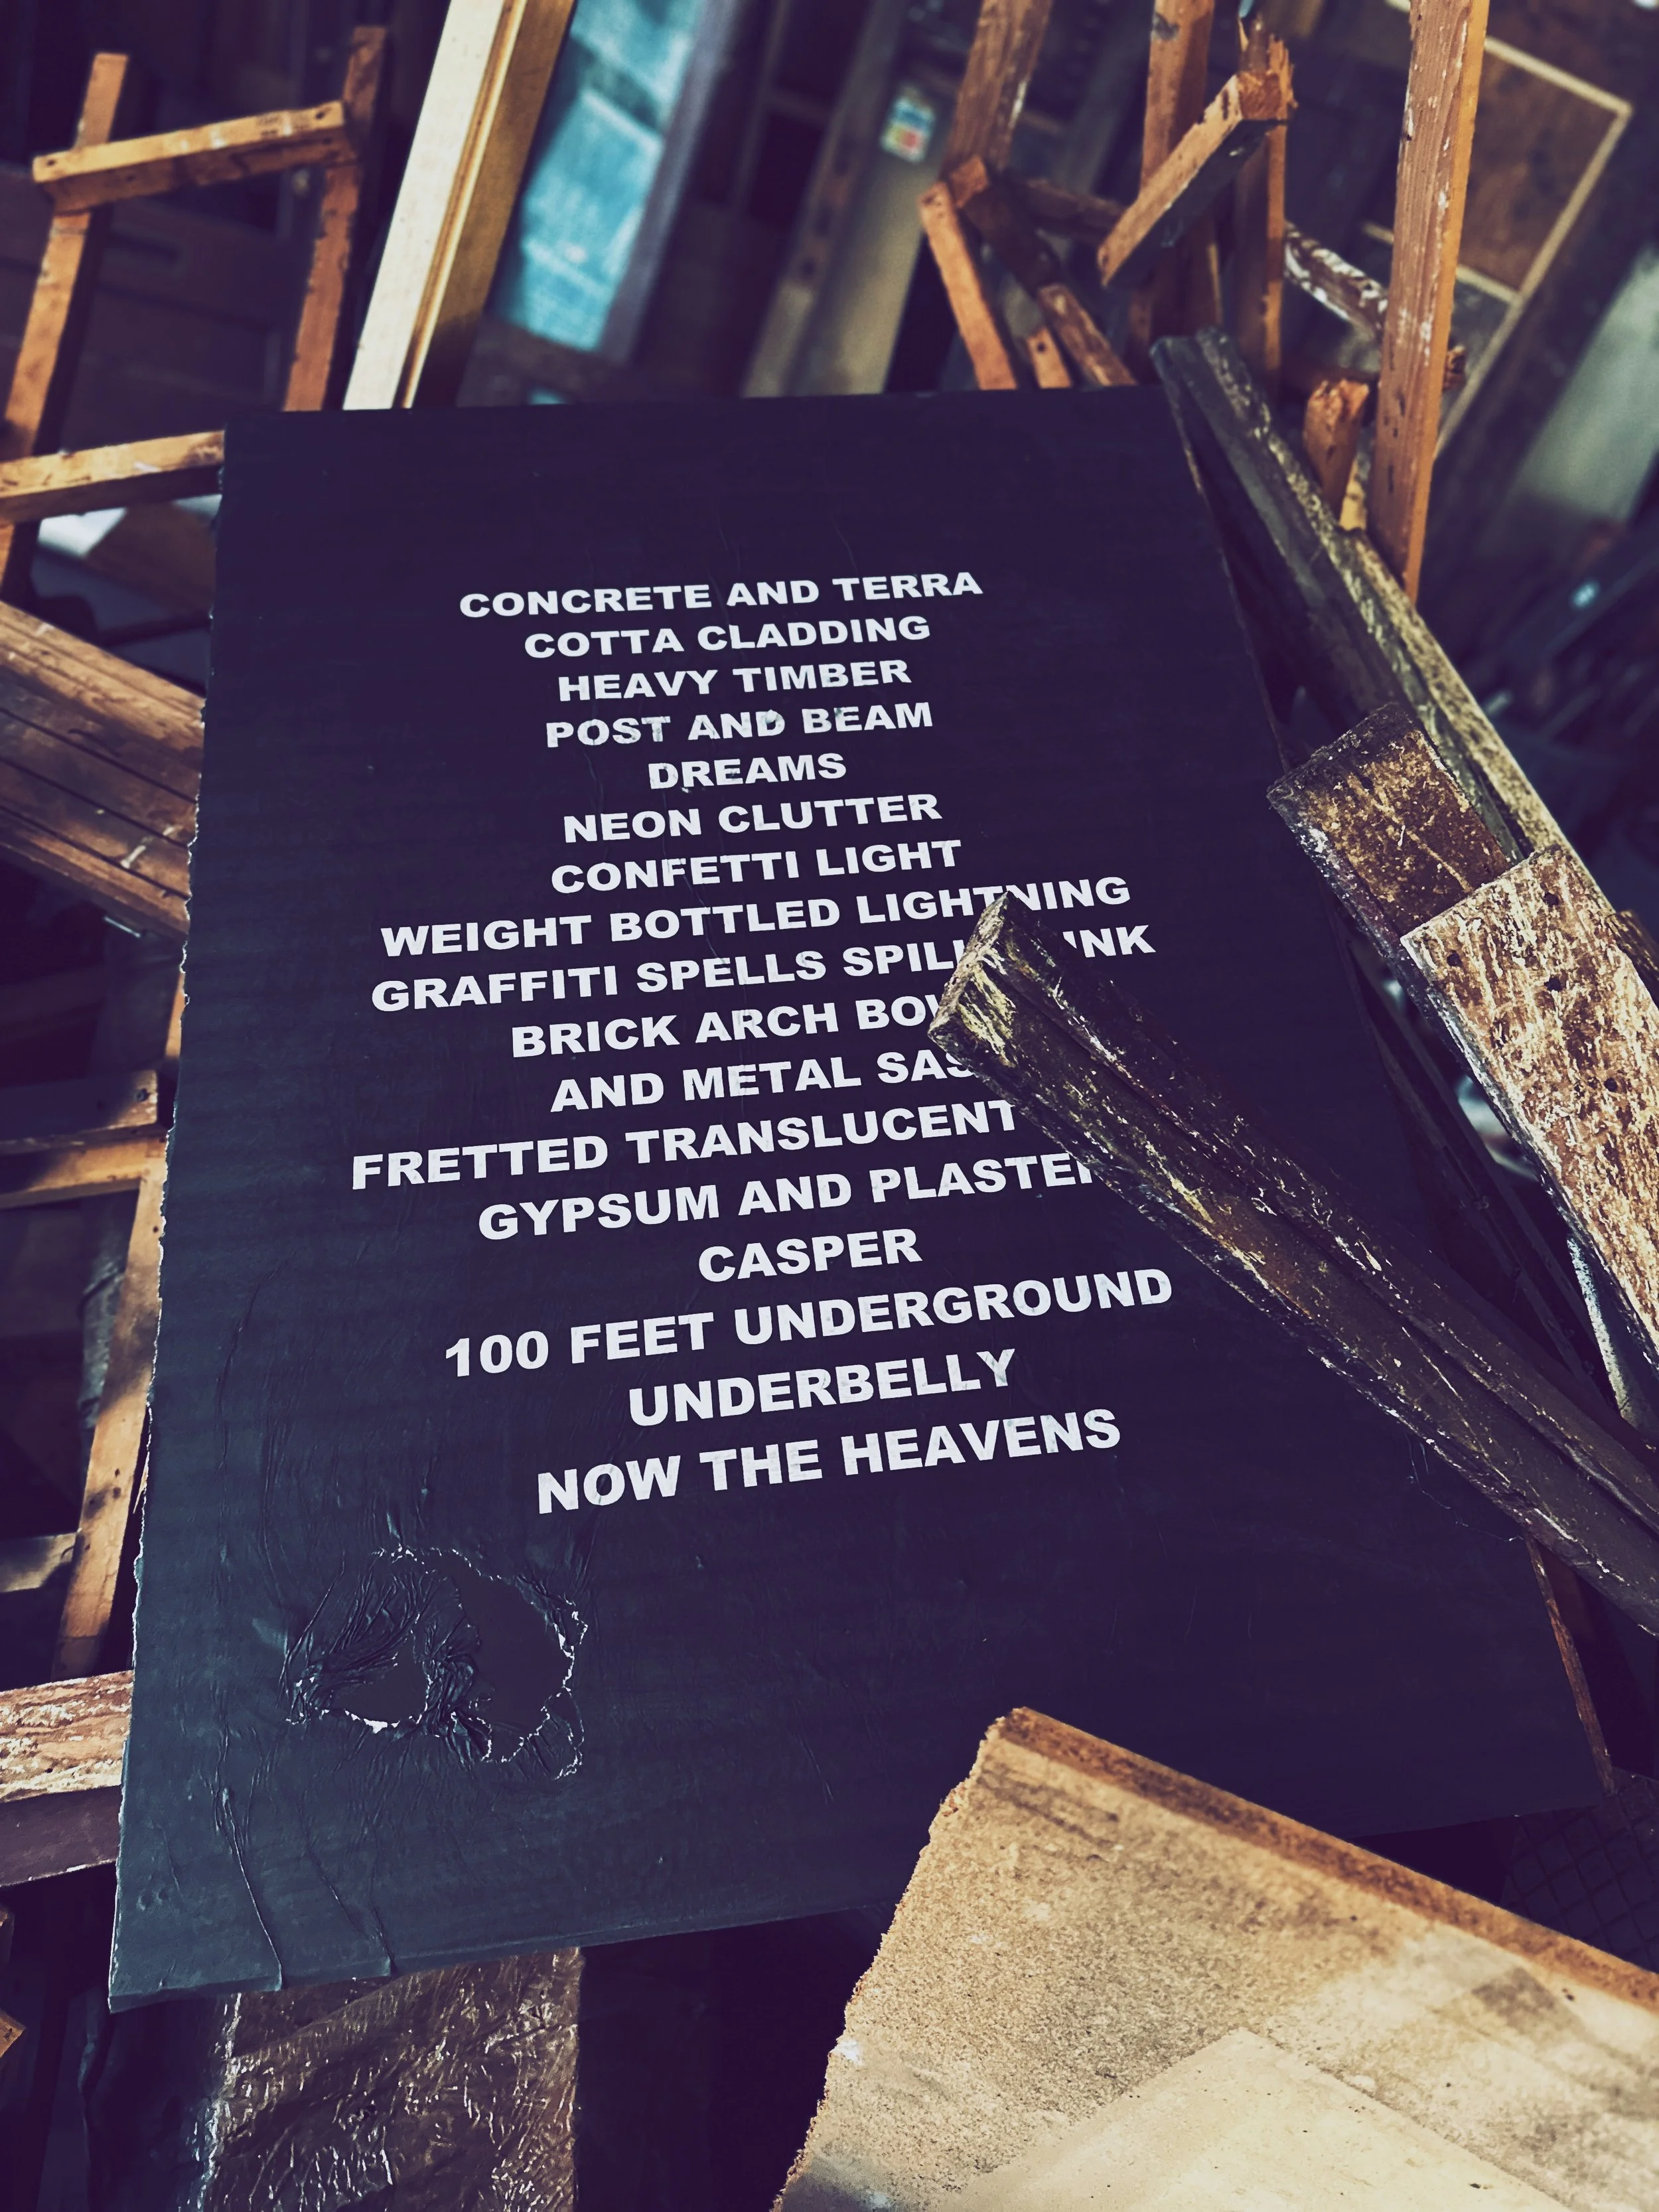 CONCRETE AND TERRA
COTTA CLADDING
HEAVY TIMBER
POST AND BEAM
DREAMS
NEON CLUTTER
CONFETTI LIGHT
WEIGHT BOTTLED LIGHTNING
GRAFFITI SPELLS
BRICK ARCH
AND METAL
FRETTED TRANSLUCENT
GYPSUM AND PLASTER
CASPER
100 FEET UNDERGROUND
UNDERBELLY
NOW THE HEAVENS